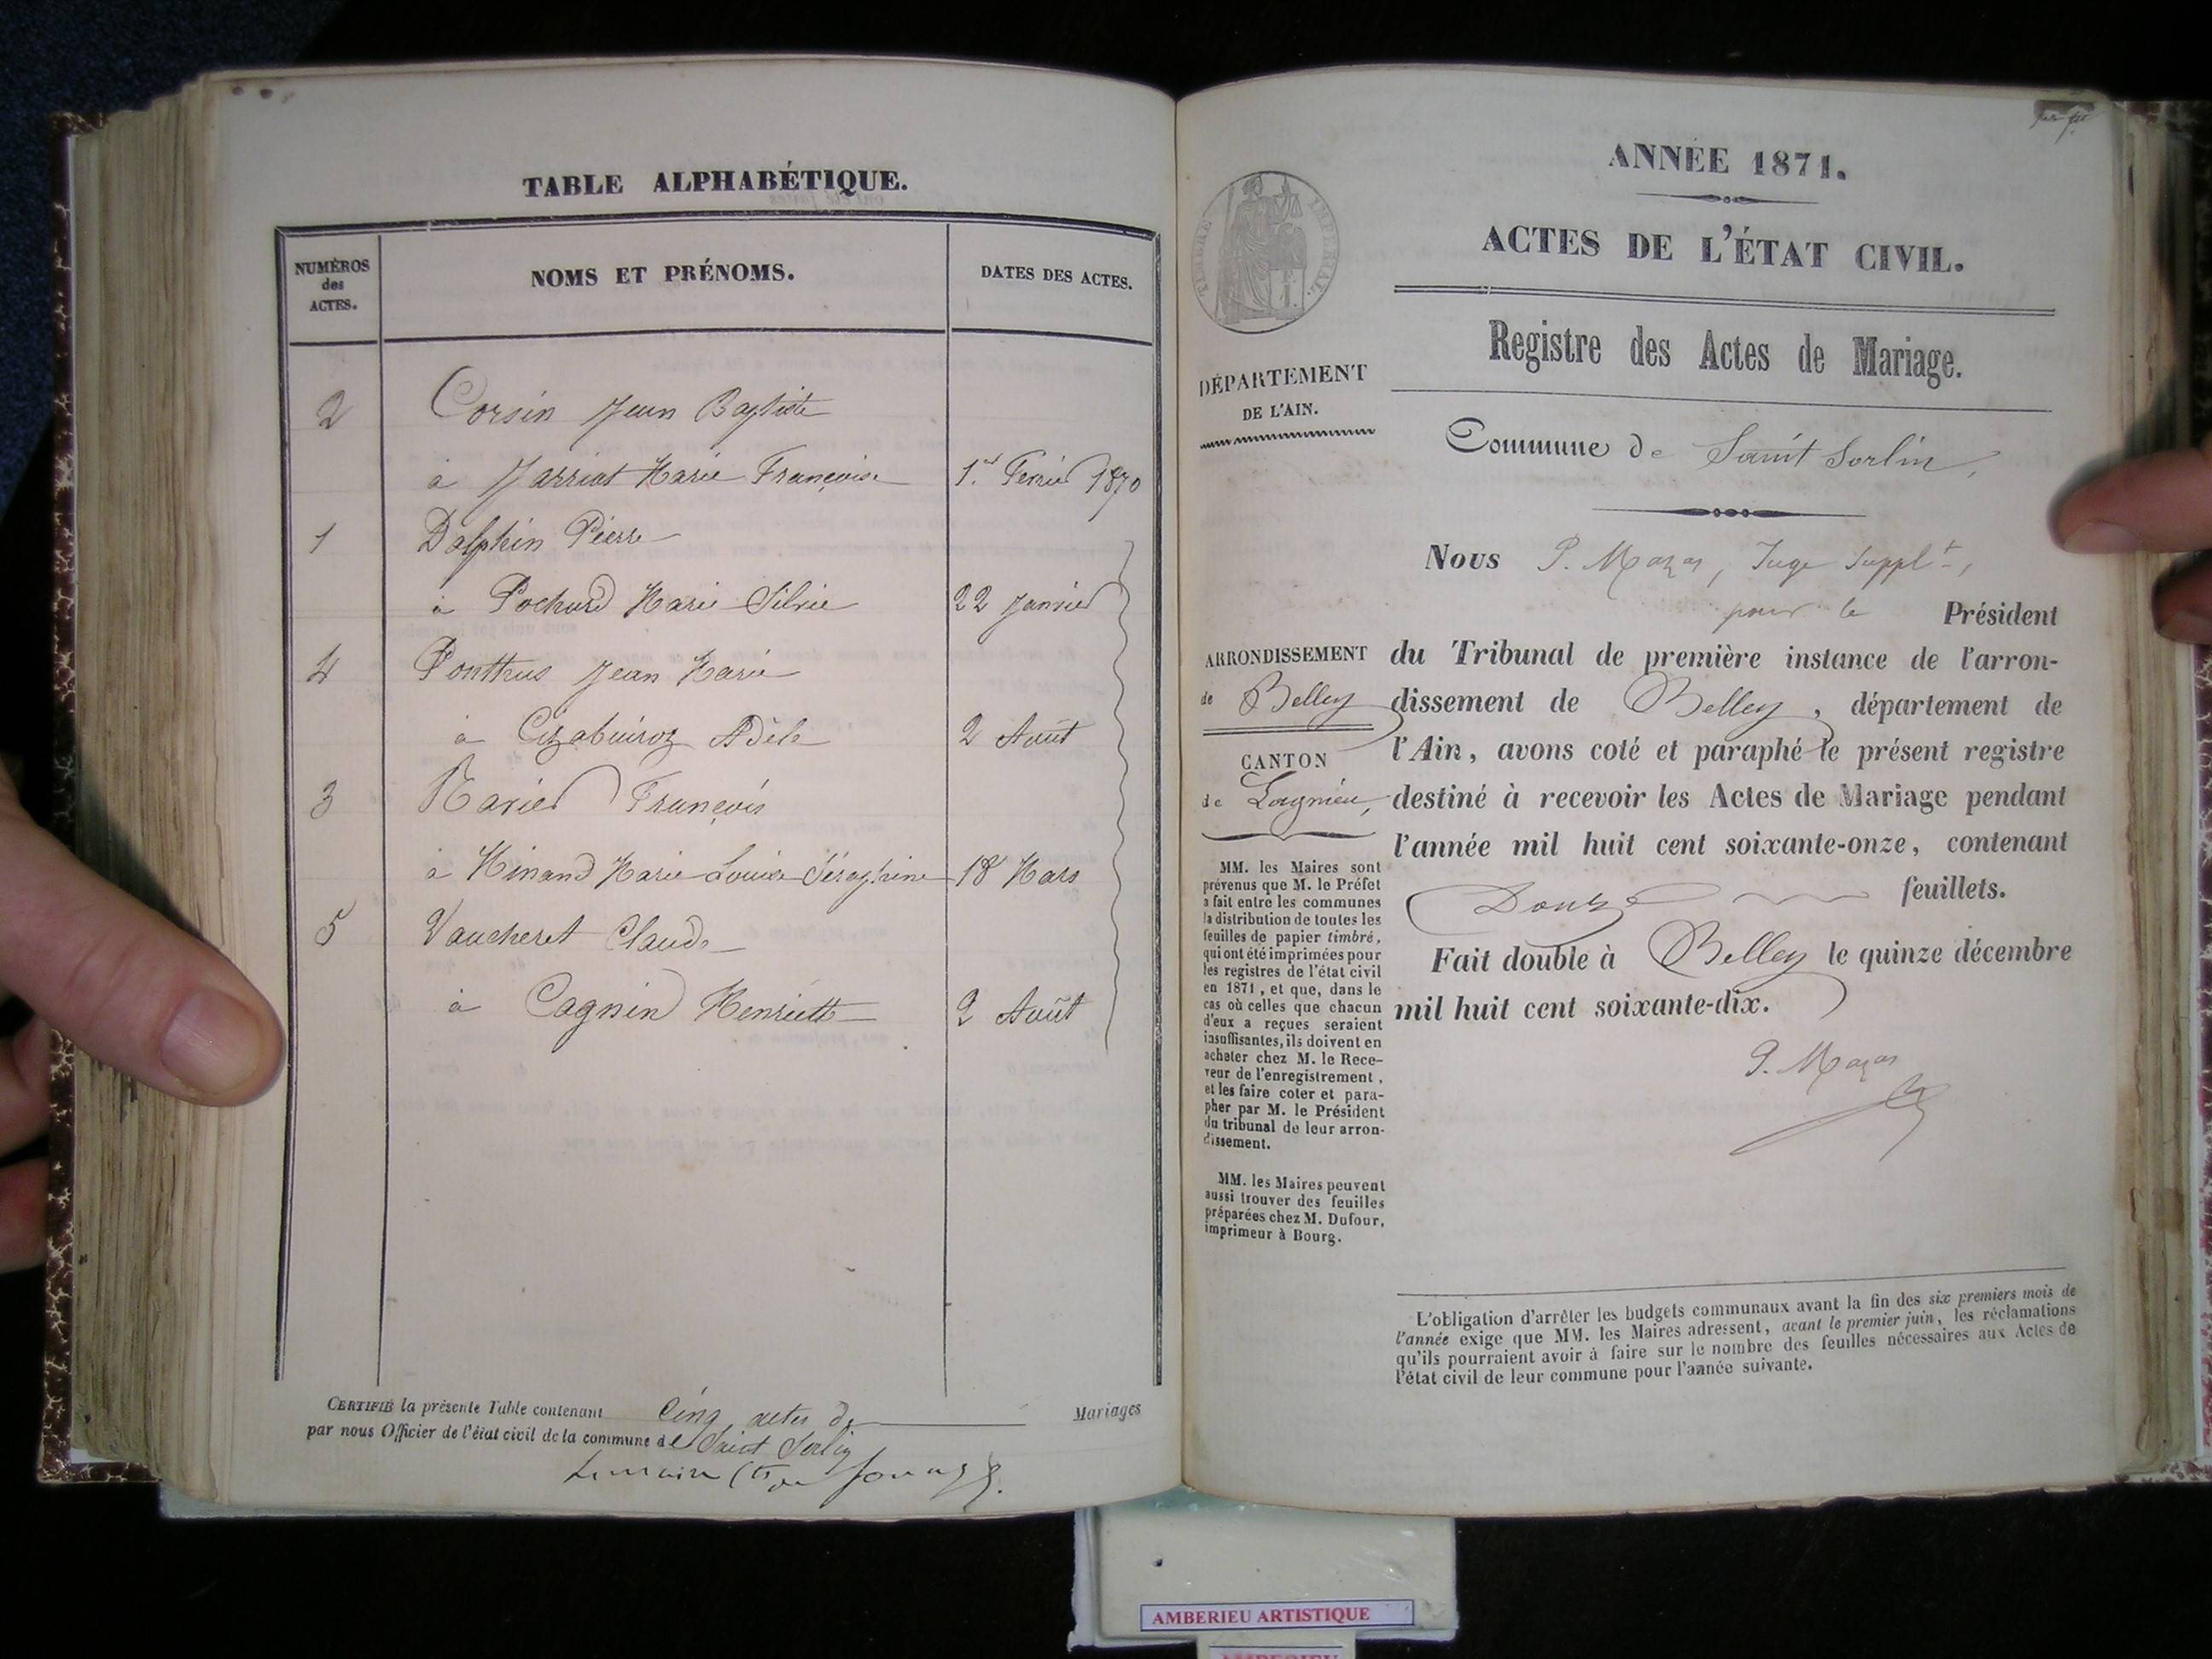 TABLE ALPHABÉTIQUE.
NUMÉROS
des
ACTES.
NOMS ET PRÉNOMS.
DATES DES ACTES.
2 Corsin Jean Baptiste
à Jarriat Marie Françoise 1er Février 1870
1 Dalphin Pierre
à Pochard Marie Silvie 22 Janvier
4 Ponthus Jean Marie
à Cizabuiroz Adèle 2 Août
3 Ravier François
à Minand Marie Louise Séraphine 18 Mars
5 Vaucheret Claude
à Cagnin Henriette 2 Août
CERTIFIÉ la présente Table contenant Cinq actes de Mariages
par nous Officier de l'état civil de la commune de Saint Sorlin
ANNÉE 1871.
ACTES DE L'ÉTAT CIVIL.
Registre des Actes de Mariage.
TIMBRE IMPÉRIAL.
DÉPARTEMENT
DE L'AIN.
Commune de Saint Sorlin,
Nous P. Mazas, Juge Supplt,
pour le Président
du Tribunal de première instance de l'arron-
dissement de Belley, département de
l'Ain, avons coté et paraphé le présent registre
destiné à recevoir les Actes de Mariage pendant
l'année mil huit cent soixante-onze, contenant
Douze feuillets.
Fait double à Belley le quinze décembre
mil huit cent soixante-dix.
P. Mazas
ARRONDISSEMENT
de Belley
CANTON
de Lagnieu,
MM. les Maires sont
prévenus que M. le Préfet
a fait entre les communes
la distribution de toutes les
feuilles de papier timbré,
qui ont été imprimées pour
les registres de l'état civil
en 1871, et que, dans le
cas où celles que chacun
d'eux a reçues seraient
insuffisantes, ils doivent en
acheter chez M. le Rece-
veur de l'enregistrement,
et les faire coter et para-
pher par M. le Président
du tribunal de leur arron-
dissement.
MM. les Maires peuvent
aussi trouver des feuilles
préparées chez M. Dufour,
imprimeur à Bourg.
L'obligation d'arrêter les budgets communaux avant la fin des six premiers mois de
l'année exige que MM. les Maires adressent, avant le premier juin, les réclamations
qu'ils pourraient avoir à faire sur le nombre des feuilles nécessaires aux Actes de
l'état civil de leur commune pour l'année suivante.
AMBERIEU ARTISTIQUE
AMBERIEU